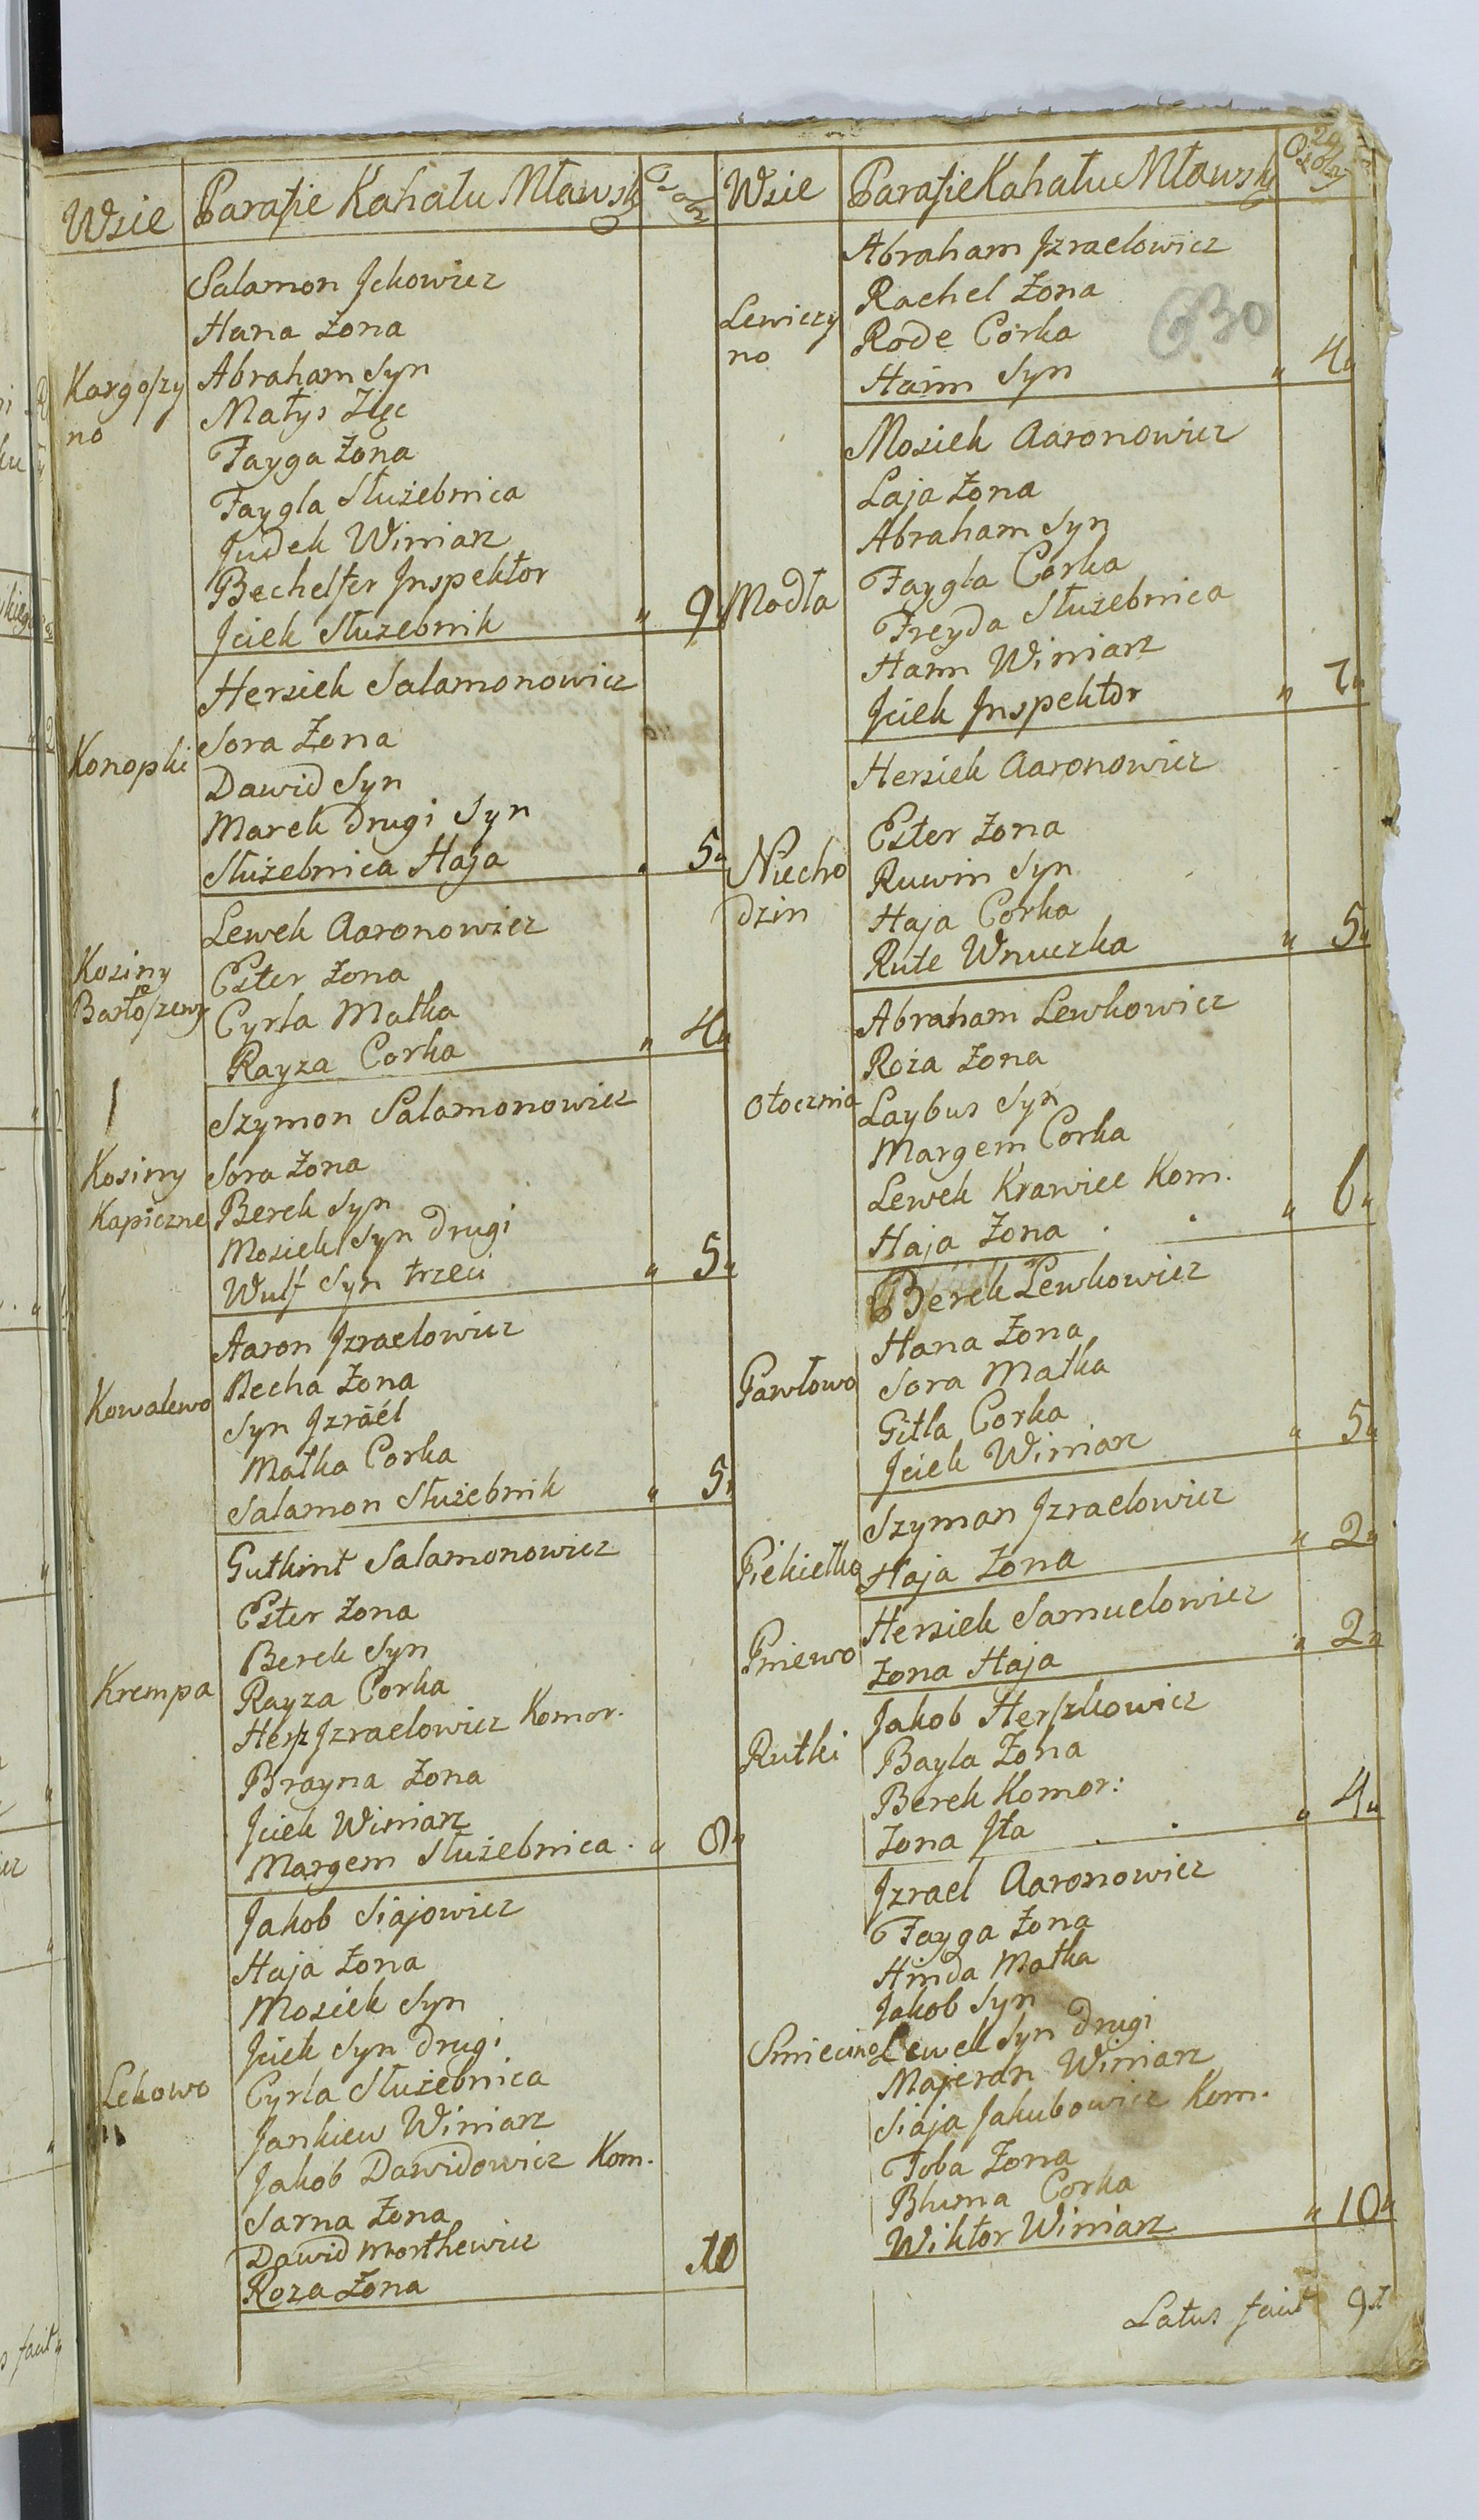 Wsie
Parafie Kahału Mławsk
Osoby
Salamon Jckowicz
Hana Żona
Kargoszy
no
Abraham Syn
Matys Zięc
Fayga Żona
Faygla Służebnica
Judek Winiarz
Bechelfer Jnspektor
Jciek Służebnik " 9"
Hersiek Salamonowicz
Konopki
Sora Żona
Dawid Syn
Marek Drugi Syn
Służebnica Haja " 5"
Lewek Aaronowicz
Kosiny
Bartoszewe
Ester Żona
Cyrla Matka
Rayza Corka " 4"
Szymon Salamonowicz
Kosiny
Kapiczne
Sora Żona
Berek Syn
Mosiek Syn Drugi
Wulf Syn trzeci " 5"
Aaron Jzraelowicz
Kowalewo
Recha Żona
Syn Jzraél
Matka Corka
Salamon Służebnik " 5"
Gutkint Salamonowicz
Ester Żona
Berek Syn
Krempa
Rayza Corka
Hersz Jzraelowicz Komor.
Brayna Żona
Jciek Winiarz
Margem Służebnica . " 8"
Jakob Siajowicz
Haja Żona
Mosiek Syn
Jciek Syn Drugi
Lekowo
Cyrla Służebnica
Jankiew Winiarz
Jakob Dawidowicz Kom.
Sarna Żona
Dawid Morthewicz
Roza Żona 10
Wsie
Parafie Kahału Mławsk
Osoby
29
Abraham Jzraelowicz
Lewiczy
no
Rachel Żona
630
Rode Corka
Haim Syn " 4"
Mosiek Aaronowicz
Laja Żona
Abraham Syn
Modła
Faygla Corka
Freyda Służebnica
Haim Winiarz
Jciek Jnspektor " 7"
Hersiek Aaronowicz
Niecho
dzin
Ester Żona
Ruwin Syn
Haja Corka
Rute Wnuczka " 5"
Abraham Lewkowicz
Roza Żona
Otocznia
Laybus Syn
Margem Corka
Lewek Krawiec Kom.
Haja Żona . . " 6"
Berek Lewkowicz
Hana Żona
Pawłowo
Sora Matka
Gitla Corka
Jciek Winiarz " 5"
Szyman Jzraelowicz
Piekiełko
Haja Żona " 2"
Hersiek Samuelowicz
Pniewo
Żona Haja " 2"
Jakob Herszkowicz
Rutki
Bayla Żona
Berek Komor:
Żona Jta . . " 4"
Jzrael Aaronowicz
Fayga Żona
Hinda Matka
Jakob Syn
Smiecino
Lewek Syn Drugi
Majeran Winiarz
Siaja Jakubowicz Kom.
Toba Żona
Bluma Corka
Wiktor Winiarz " 10"
Latus facit 91